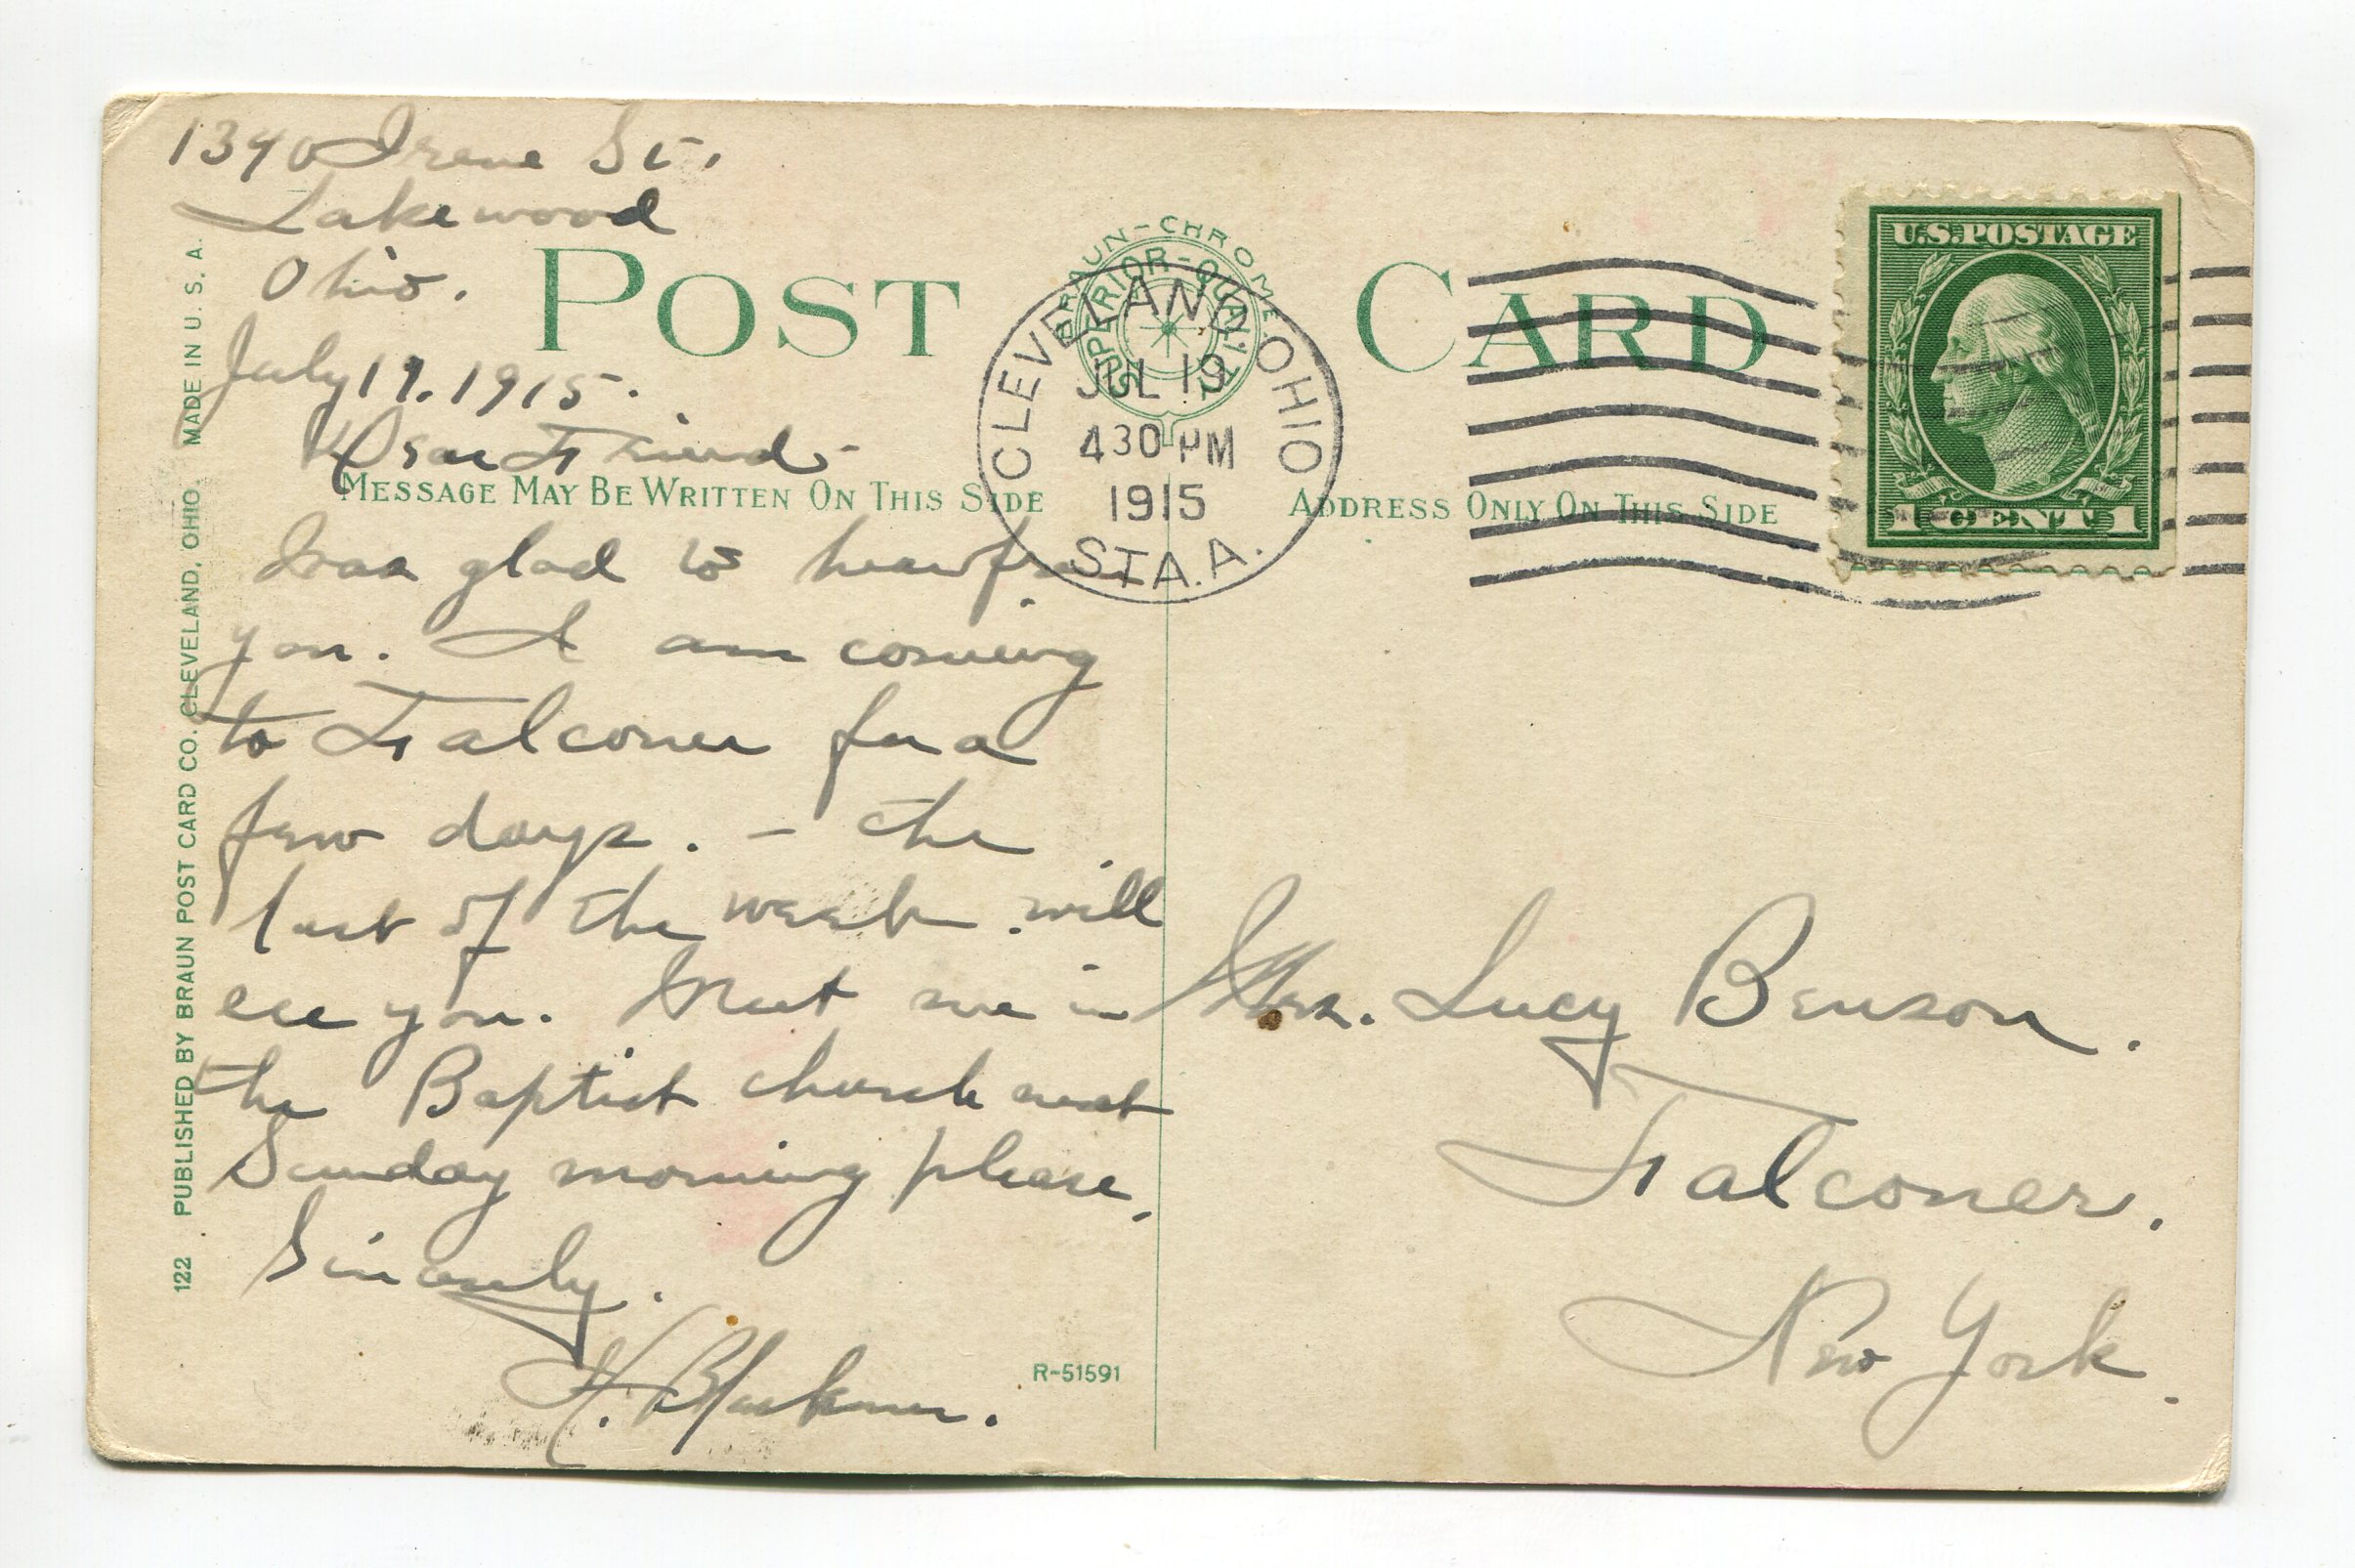 1340 Irene St.
Lakewood
Ohio.
July 19. 1915.
Dear Friend -
Was glad to hear from
you. I am coming
to Falconer for a
few days. - the
last of the week. will
see you. Meet me in
the Baptist church next
Sunday morning please.
Sincerely.
H. Blackmer.
POST CARD
BRAUN-CHROME
SUPERIOR-QUALITY
MESSAGE MAY BE WRITTEN ON THIS SIDE
ADDRESS ONLY ON THIS SIDE
CLEVELAND, OHIO
JUL 19
430 PM
1915
STA. A.
U.S. POSTAGE
1 CENT 1
Mrs. Lucy Benson.
Falconer.
New York.
122 PUBLISHED BY BRAUN POST CARD CO. CLEVELAND, OHIO MADE IN U.S.A.
R-51591